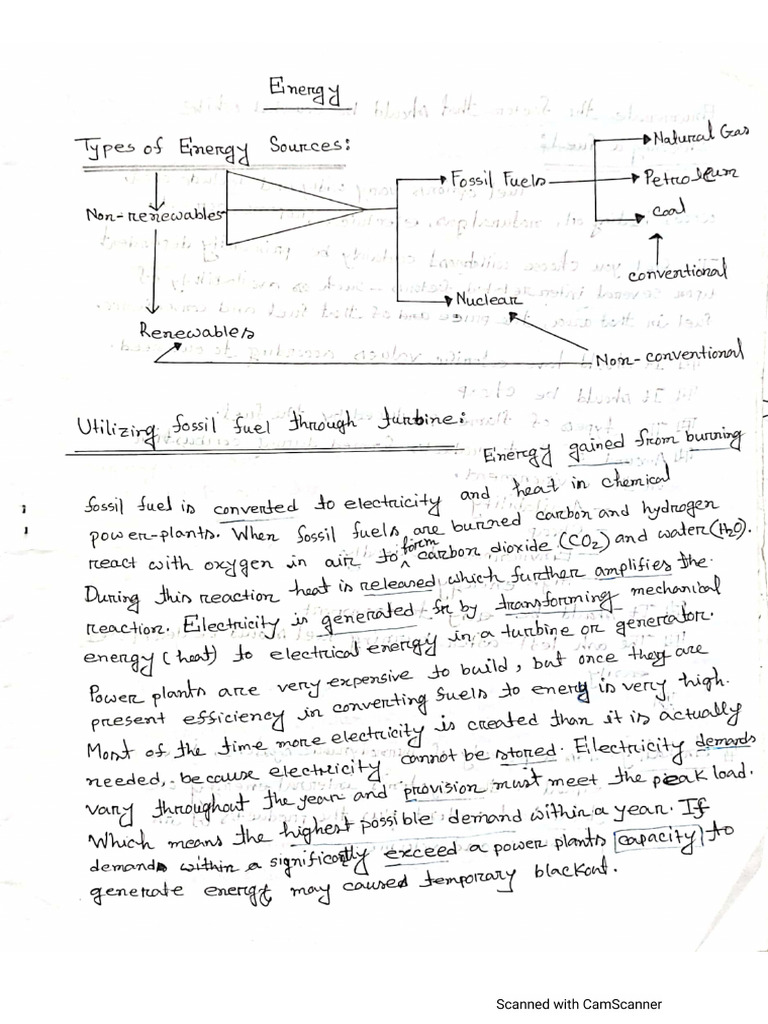 Energy
Types of Energy Sources:
Natural Gas
Fossil Fuels
Petroleum
Non-renewables
coal
conventional
Nuclear
Renewables
Non-conventional
Utilizing fossil fuel through turbine:
Energy gained from burning
fossil fuel is converted to electricity and heat in chemical
power-plants. When fossil fuels are burned carbon and hydrogen
react with oxygen in air to form carbon dioxide (CO2) and water (H2O).
During this reaction heat is released which further amplifies the
reaction. Electricity is generated by transforming mechanical
energy (heat) to electrical energy in a turbine or generator.
Power plants are very expensive to build, but once they are
present efficiency in converting fuels to energy is very high.
Most of the time more electricity is created than it is actually
needed, because electricity cannot be stored. Electricity demands
vary throughout the year and provision must meet the peak load.
Which means the highest possible demand within a year. If
demands significantly exceed a power plants capacity to
generate energy may caused temporary blackout.
Scanned with CamScanner